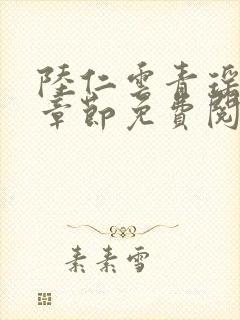 陸仁雲青瑤
章節免費閱
素素雪